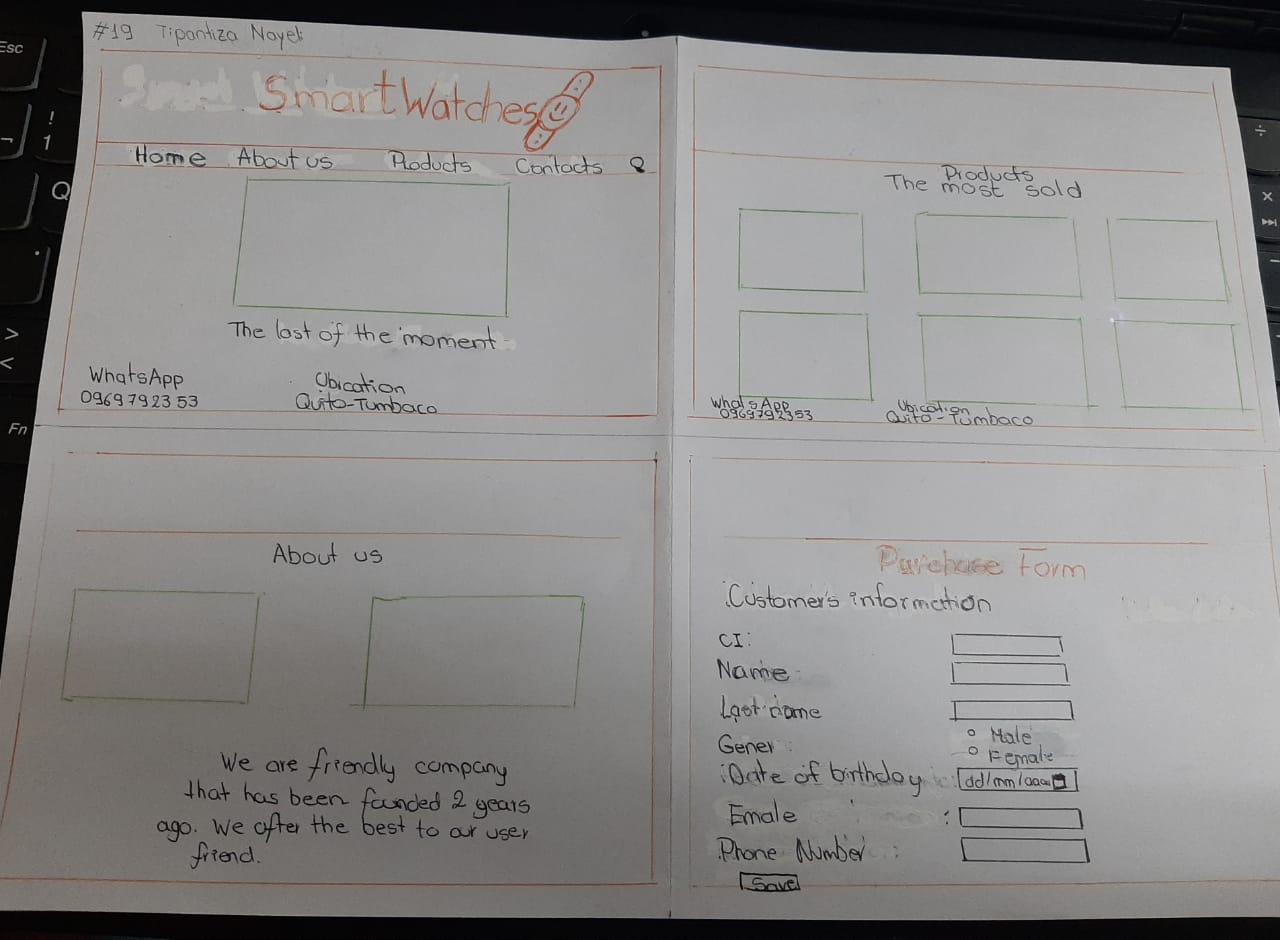 #19 Tipantiza Nayeli
SmartWatches
Home About us Products Contacts
The last of the moment
WhatsApp
0969792353
Ubication
Quito-Tumbaco
Products
The most sold
WhatsApp
0969792353
Ubication
Quito-Tumbaco
About us
We are friendly company
that has been founded 2 years
ago. We ofter the best to our user
friend.
Purchase Form
Customer's information
CI:
Name
Last name
Gener :
Male
Female
Date of birthday : dd/mm/aaaa
Emale :
Phone Number :
Save
Esc
!
1
Q
>
<
Fn